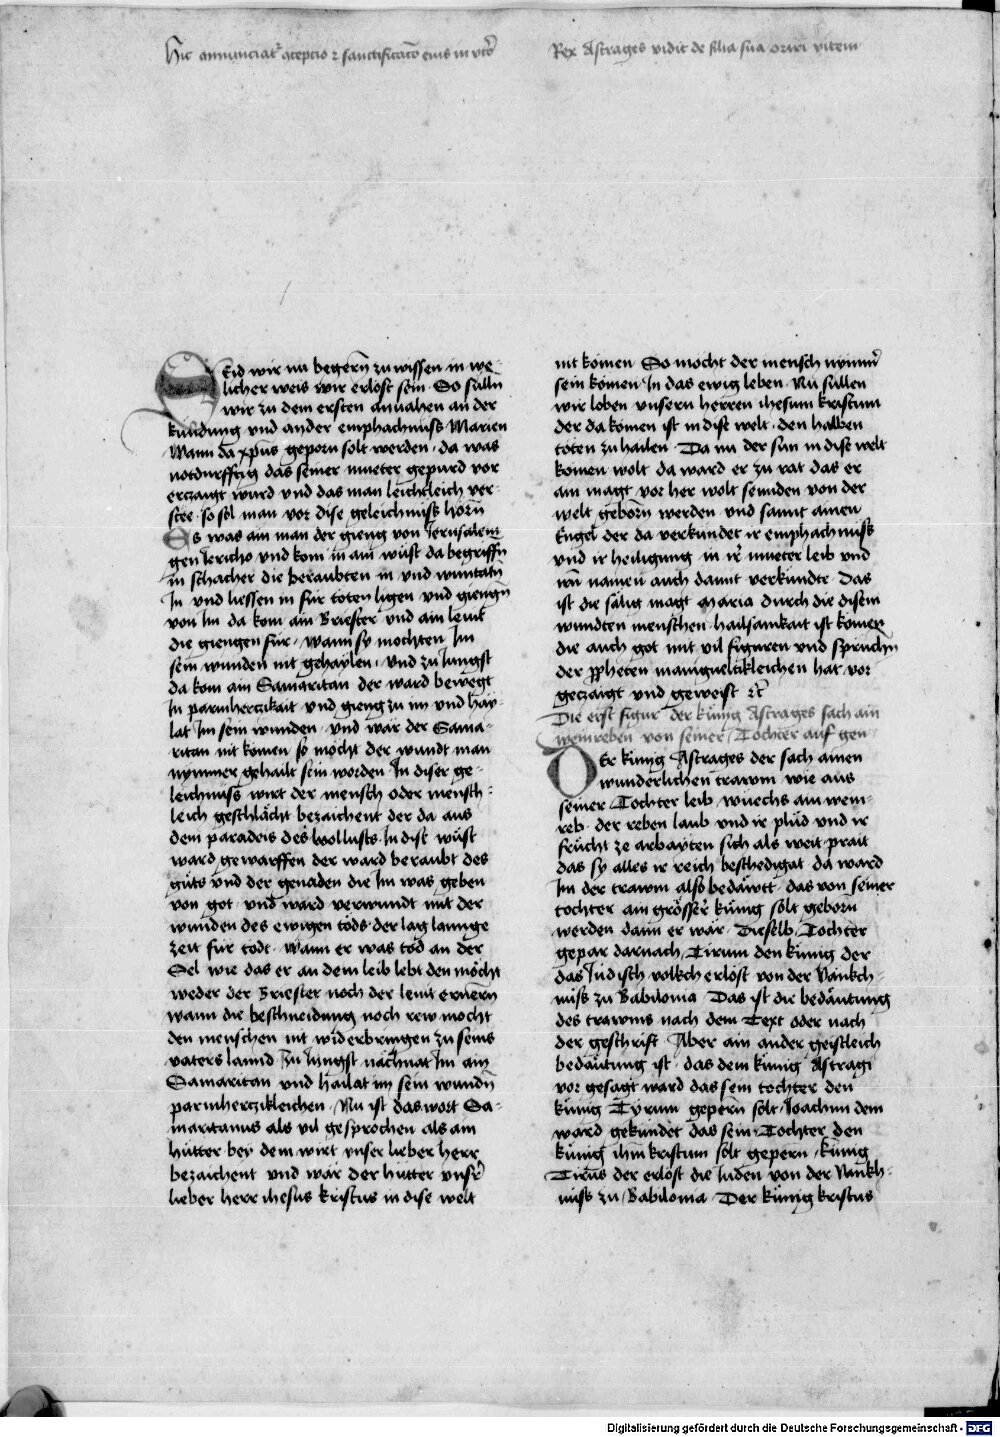 Hic annunciatʳ ɔcepcio ⁊ sanctificacō eius in vtō
Rex Astrages vidit de filia sua oriri vitem
SEid wir nu begern̄ zu wissen in we-
licher weis wir erlöst sein · So sulln
wir zu dem ersten anuahen an der
kündung vnd an der emphachnüss Marien
Wann da xp̄us geporn solt werden · da was
notdurfftig das seiner mueter gepurd vor
erczaigt wurd vnd das man leichtleich ver-
stee · so sol man vor dise geleichnüss hörn̄
Es was ain man der gieng von Jerusalem
gen Jericho vnd kom in ain wüst da begriffn̄
in schacher die beraubten in vnd wuntatn̄
In vnd liessen in für toten ligen vnd giengn̄
von Im da kom ain Briester vnd ain leuit
die giengen für · wann sy mochten Im
sein wunden nit gehaylen · vnd zu Jungst
da kom ain Samaritan der ward bewegt
In parmherczikait vnd gieng zu im vnd hay-
lat Im sein wunden · vnd wär der Sama-
ritan nit komen so möcht der wundt man
nymmer gehailt sein worden · In diser ge-
leichnüss wirt der mensch oder mensch-
leich geschlächt bezaichent der da aus
dem paradeis des wollusts In dise wüst
ward gewarffen der ward beraubt des
guts vnd der genaden die Im was geben
von got vnd ward verwundt mit der
wunden des ewigen tods · der lag lannge
zeit für todt · Wann er was tod an der
Sel wie das er an dem leib lebt den möcht
weder der Briester noch der leuit ernern̄
wann die beschneidung noch rew mocht
den menschen nit widerbringen zu seins
vaters lannd Zu Jungst nächnat Im ain
Samaritan vnd hailat im sein wundn̄
parmherczikleichen · Nu ist das wort Sa-
maritanus als vil gesprochen als ain
hütter · bey dem wirt vnser lieber herr
bezaichent vnd wär der hütter vnsr̄
lieber herr ihesus kristus in dise welt
nit komen So mocht der mensch nymm̄
sein komen · In das ewig leben · Nu sullen
wir loben vnsern herren ihesum kristum
der da komen ist in dise welt · den halben
toten zu hailen · Da nu der sun in dise welt
komen wolt da ward er zu rat das er
ain magt vor her wolt sennden von der
welt geborn̄ werden vnd sannt ainen
Engel der da verkündet ir emphachnüss
vnd ir heiligung in ir̄ mueter leib vnd
irn̄ namen auch damit verkündte · Das
ist die sälig magt Maria durch die disem
wundten menschen hailsamkait ist komen
die auch got mit vil figuren vnd sprüchn̄
der ꝓpheten manigueltikleichen hat vor
geczaigt vnd geweist ⁊c̄
Die erst figur der künig Astrages sach ain
weinreben von seiner Tochter auf gen
DEr künig Astrages der sach ainen
wunderlichen trawm wie aus
seiner Tochter leib wuechs ain wein-
reb · der reben laub vnd ir plüd vnd ir
frücht ze arbayten sich als weit prait
das sy alles ir reich beschedigat · da ward
Im der trawm also bedäwtt · das von seiner
tochter ain grösser̄ künig solt geborn
werden dann er wär · Dieselb Tochter
gepar darnach Tirum den künig der
das Judisch volkch erlöst von der vänkch-
nüss zu Babilonia Das ist die bedäutung
des trawms nach dem Text oder nach
der geschrift Aber ain ander geistleich
bedäutung ist · das dem künig Astragi
vor gesagt ward das sein tochter den
künig Tyrum gepern̄ solt · Joachim dem
ward gekündet das sein Tochter den
künig ihm̄ kristum solt gepern · künig
Tirus der erlöst die Juden von der vänkh-
nüss zu Babilonia · Der künig kristus
Digitalisierung gefördert durch die Deutsche Forschungsgemeinschaft - DFG